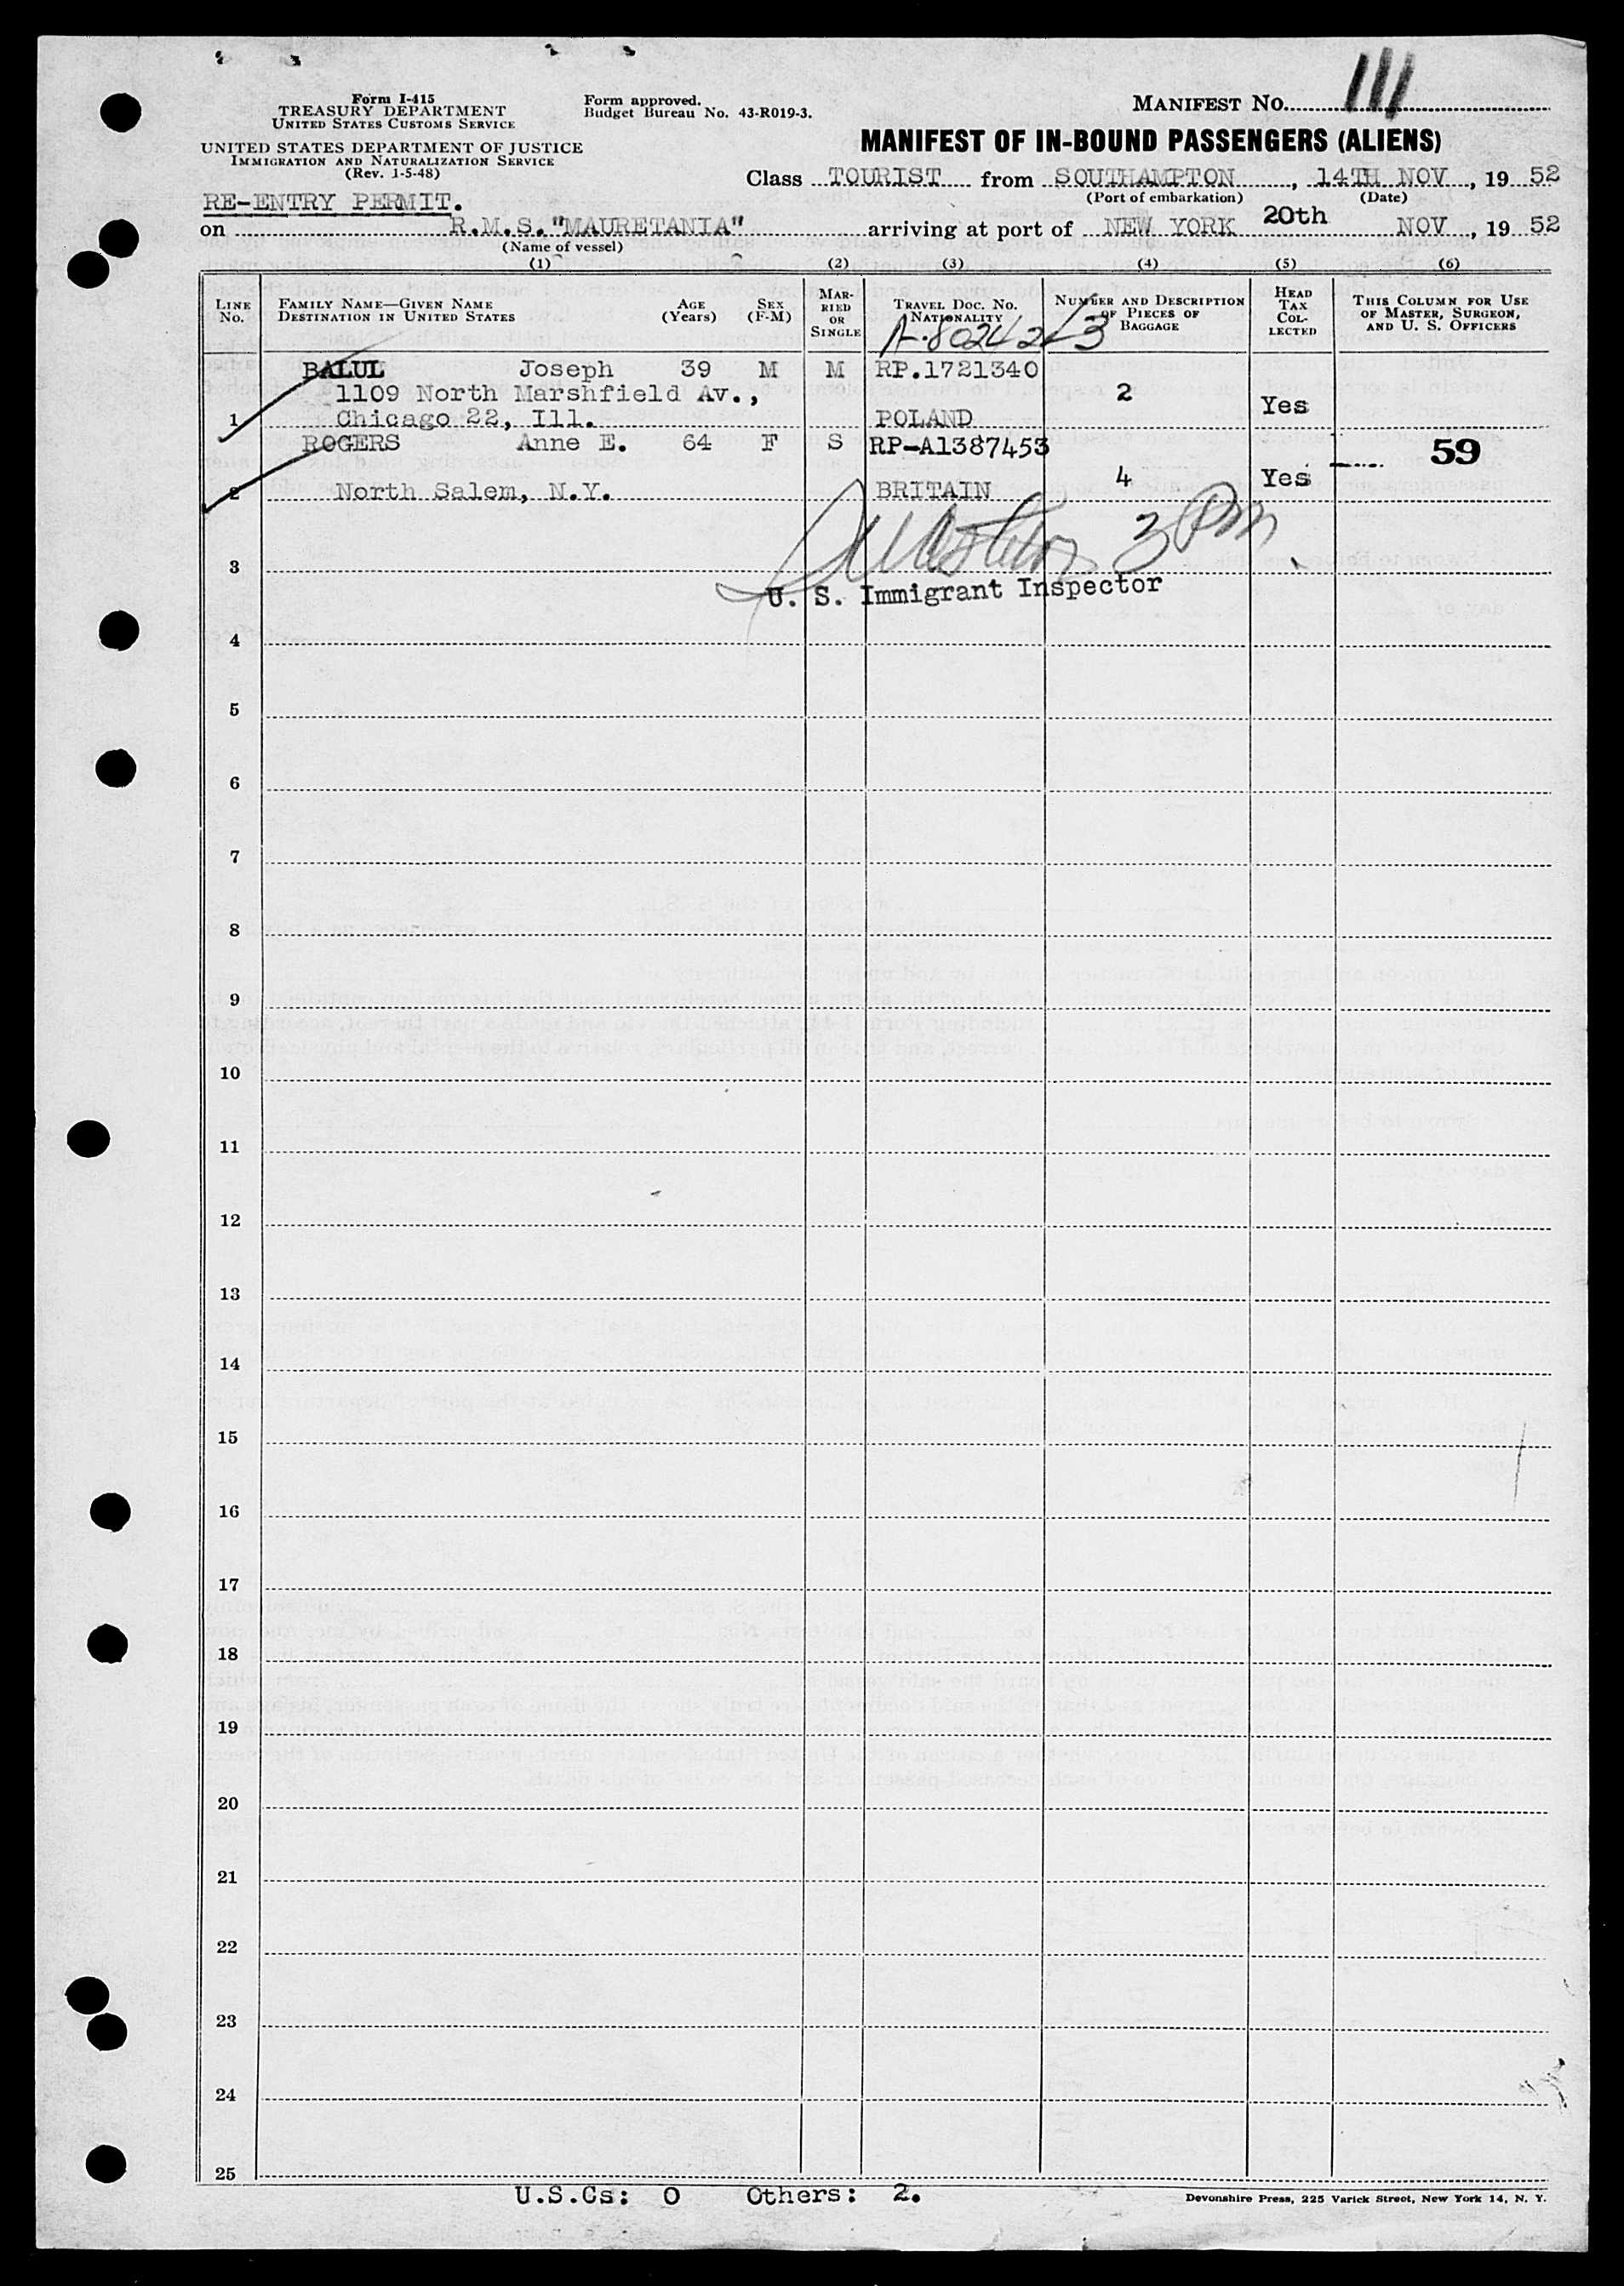 Form I-415
TREASURY DEPARTMENT
UNITED STATES CUSTOMS SERVICE
UNITED STATES DEPARTMENT OF JUSTICE
IMMIGRATION AND NATURALIZATION SERVICE
(Rev. 1-5-48)
Form approved.
Budget Bureau No. 43-R019-3.
MANIFEST NO. 111
MANIFEST OF IN-BOUND PASSENGERS (ALIENS)
Class TOURIST from SOUTHAMPTON, 14TH NOV, 19 52
(Port of embarkation) (Date)
RE-ENTRY PERMIT.
on R.M.S. "MAURETANIA" arriving at port of NEW YORK 20th NOV, 19 52
(Name of vessel)
(1) (2) (3) (4) (5) (6)
LINE No. FAMILY NAME—GIVEN NAME DESTINATION IN UNITED STATES AGE (Years) SEX (F-M) MARRIED OR SINGLE TRAVEL DOC. NO. NATIONALITY NUMBER AND DESCRIPTION OF PIECES OF BAGGAGE HEAD TAX COLLECTED THIS COLUMN FOR USE OF MASTER, SURGEON, AND U. S. OFFICERS
BALUL Joseph 39 M M RP.1721340
1109 North Marshfield Av., 2
1 Chicago 22, Ill. POLAND Yes
ROGERS Anne E. 64 F S RP-A1387453 59
2 North Salem, N.Y. BRITAIN 4 Yes
3 PM
3
U. S. Immigrant Inspector
4
5
6
7
8
9
10
11
12
13
14
15
16
17
18
19
20
21
22
23
24
25
U.S.Cs: 0 Others: 2.
Devonshire Press, 225 Varick Street, New York 14, N. Y.